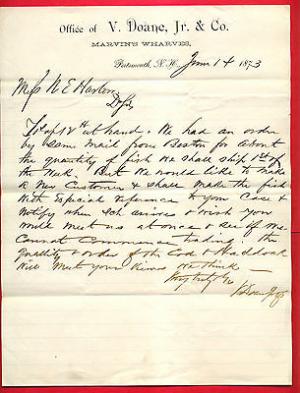 Office of V. Doane, Jr. & Co.
MARVIN'S WHARVES,
Portsmouth, N. H., June 14 1873
Miss N E Harlow
Yours of 12th at hand. We had an order
by same mail from Boston for about
the quantity of fish we shall ship 1st of
the Week. But we would like to make
a New Customer & shall make the fish
with Especial reference to your Case &
Notify when Sch arrives & wish you
would meet us at once & see if we
Cannot Commence trading. The
quality & order of the Cod & Haddock
will meet your views we think
Very truly
V Doane Jr & Co